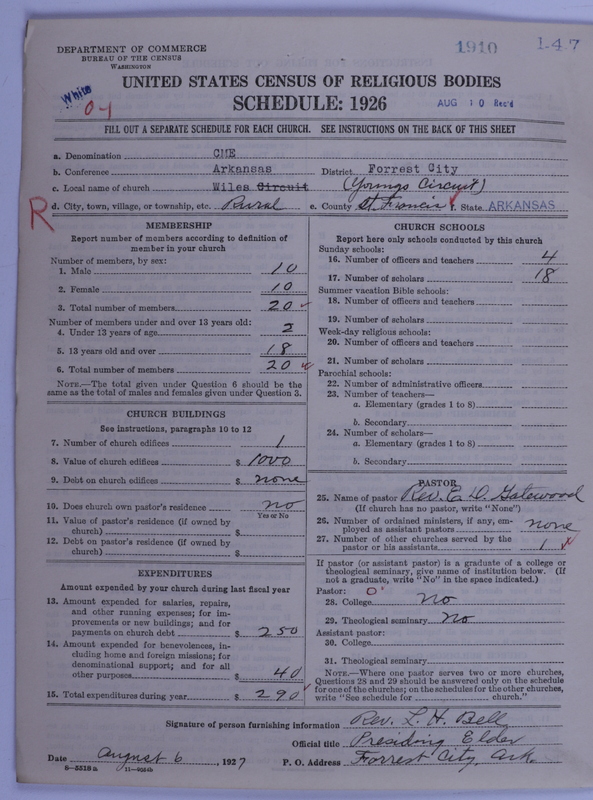 DEPARTMENT OF COMMERCE
BUREAU OF THE CENSUS
WASHINGTON
1910
1-47
White
0-1
UNITED STATES CENSUS OF RELIGIOUS BODIES
SCHEDULE: 1926
AUG 10 Rec'd
FILL OUT A SEPARATE SCHEDULE FOR EACH CHURCH. SEE INSTRUCTIONS ON THE BACK OF THIS SHEET
a. Denomination CME
b. Conference Arkansas District Forrest City
c. Local name of church Wiles Circuit (Youngs Circuit)
R
d. City, town, village, or township, etc. Rural e. County St. Francis f. State ARKANSAS
MEMBERSHIP
Report number of members according to definition of
member in your church
Number of members, by sex:
1. Male 10
2. Female 10
3. Total number of members 20
Number of members under and over 13 years old:
4. Under 13 years of age 2
5. 13 years old and over 18
6. Total number of members 20
NOTE.—The total given under Question 6 should be the
same as the total of males and females given under Question 3.
CHURCH BUILDINGS
See instructions, paragraphs 10 to 12
7. Number of church edifices 1
8. Value of church edifices $ 1000
9. Debt on church edifices $ none
10. Does church own pastor's residence no
Yes or No
11. Value of pastor's residence (if owned by
church) $
12. Debt on pastor's residence (if owned by
church) $
EXPENDITURES
Amount expended by your church during last fiscal year
13. Amount expended for salaries, repairs,
and other running expenses; for im-
provements or new buildings; and for
payments on church debt $ 250
14. Amount expended for benevolences, in-
cluding home and foreign missions; for
denominational support; and for all
other purposes $ 40
15. Total expenditures during year $ 290
CHURCH SCHOOLS
Report here only schools conducted by this church
Sunday schools:
16. Number of officers and teachers 4
17. Number of scholars 18
Summer vacation Bible schools:
18. Number of officers and teachers
19. Number of scholars
Week-day religious schools:
20. Number of officers and teachers
21. Number of scholars
Parochial schools:
22. Number of administrative officers
23. Number of teachers—
a. Elementary (grades 1 to 8)
b. Secondary
24. Number of scholars—
a. Elementary (grades 1 to 8)
b. Secondary
PASTOR
25. Name of pastor Rev. E. D. Gatewood
(If church has no pastor, write "None")
26. Number of ordained ministers, if any, em-
ployed as assistant pastors none
27. Number of other churches served by the
pastor or his assistants 1
If pastor (or assistant pastor) is a graduate of a college or
theological seminary, give name of institution below. (If
not a graduate, write "No" in the space indicated.)
Pastor: 0
28. College No
29. Theological seminary No
Assistant pastor:
30. College
31. Theological seminary
NOTE.—Where one pastor serves two or more churches,
Questions 28 and 29 should be answered only on the schedule
for one of the churches; on the schedules for the other churches,
write "See schedule for church."
Signature of person furnishing information Rev. L. H. Bell
Official title Presiding Elder
Date August 6, 1927 P. O. Address Forrest City, Ark.